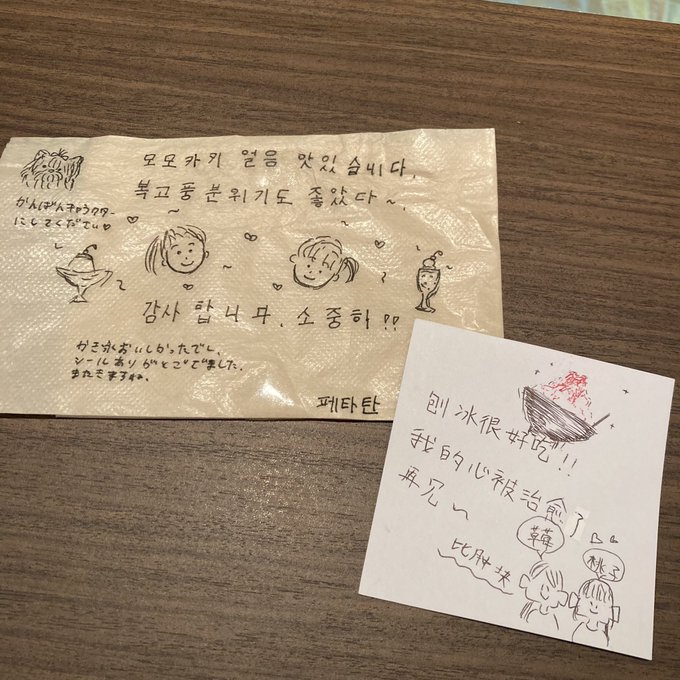 모모카키 얼음 맛있습니다.
복고풍분위기도 좋았다~.
がんばんキャラクター
にしてください♡
감사합니다. 소중히!!
かき氷おいしかったでし、
シールありがとごでました、
またきますね、
페타탄
刨冰很好吃!!
我的心被治愈了
再见~
桃子
比肿块